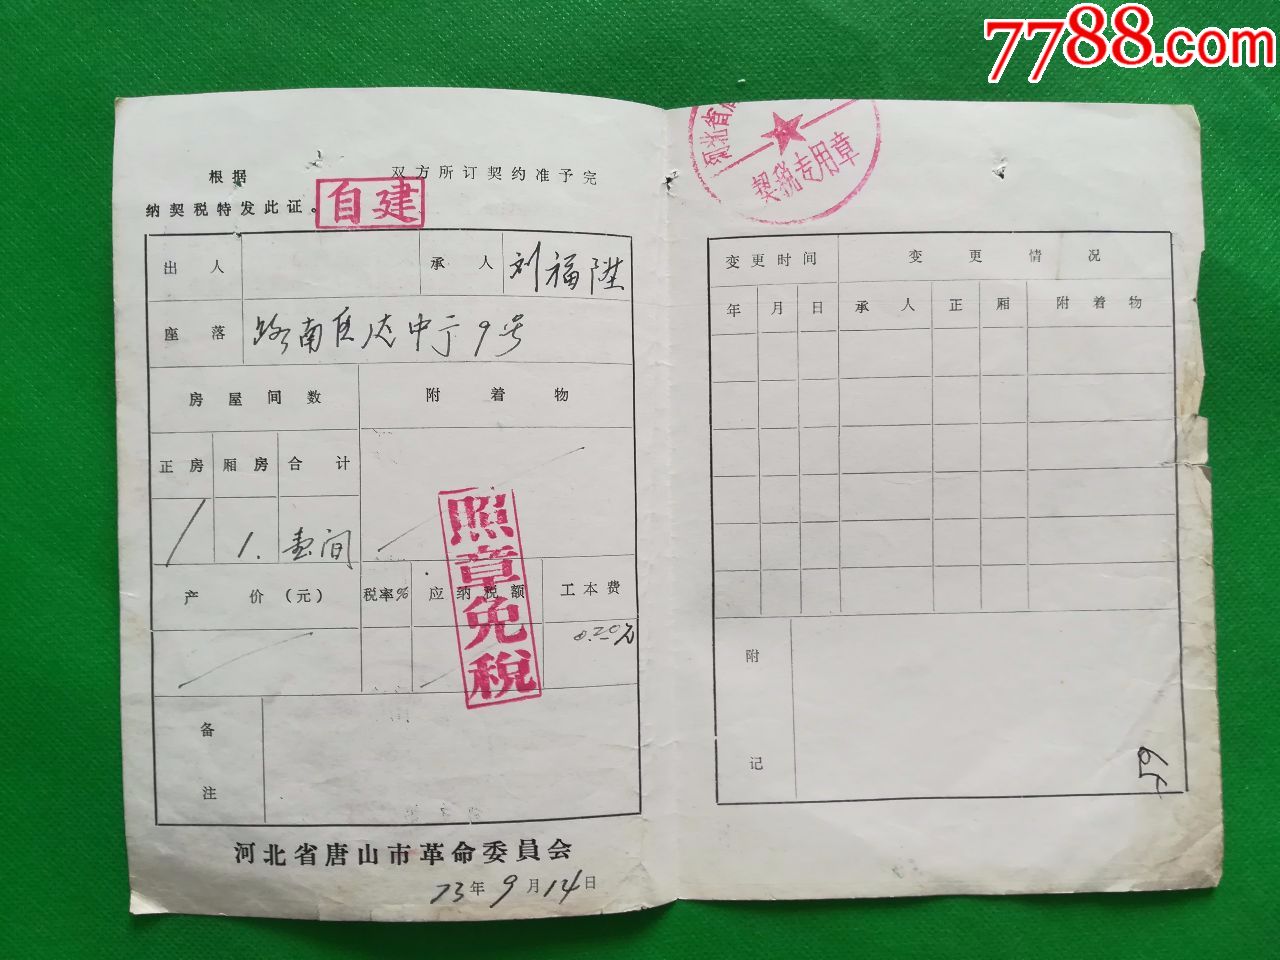 7788.com
根据 双方所订契约准予完
纳契税特发此证。
自建
出 人 承 人 刘福陞
座 落 路南区 9号
房屋间数 附 着 物
正房 厢房 合 计
1. 壹间
产 价(元) 税率% 应纳税额 工本费
0.20元
照章免税
备
注
河北省唐山市革命委員会
73年9月14日
河北省
契税专用章
变更时间 变 更 情 况
年 月 日 承 人 正 厢 附 着 物
附
记
59